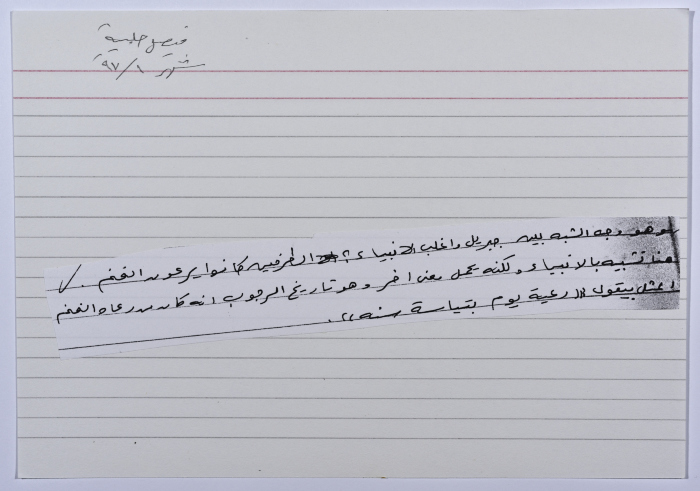 فيصل حلبية
شهر ٩٧/١
ما هو وجه الشبه بين جبريل واغلب الانبياء؟ الطرفين كانوا يرعون الغنم.
هنا تشبيه بالانبياء ولكنه يحمل معنى اخر وهو تاريخ الرجوب انه كان من رعاة الغنم
المثل بيقول "رعية يوم بتياسة سنة".